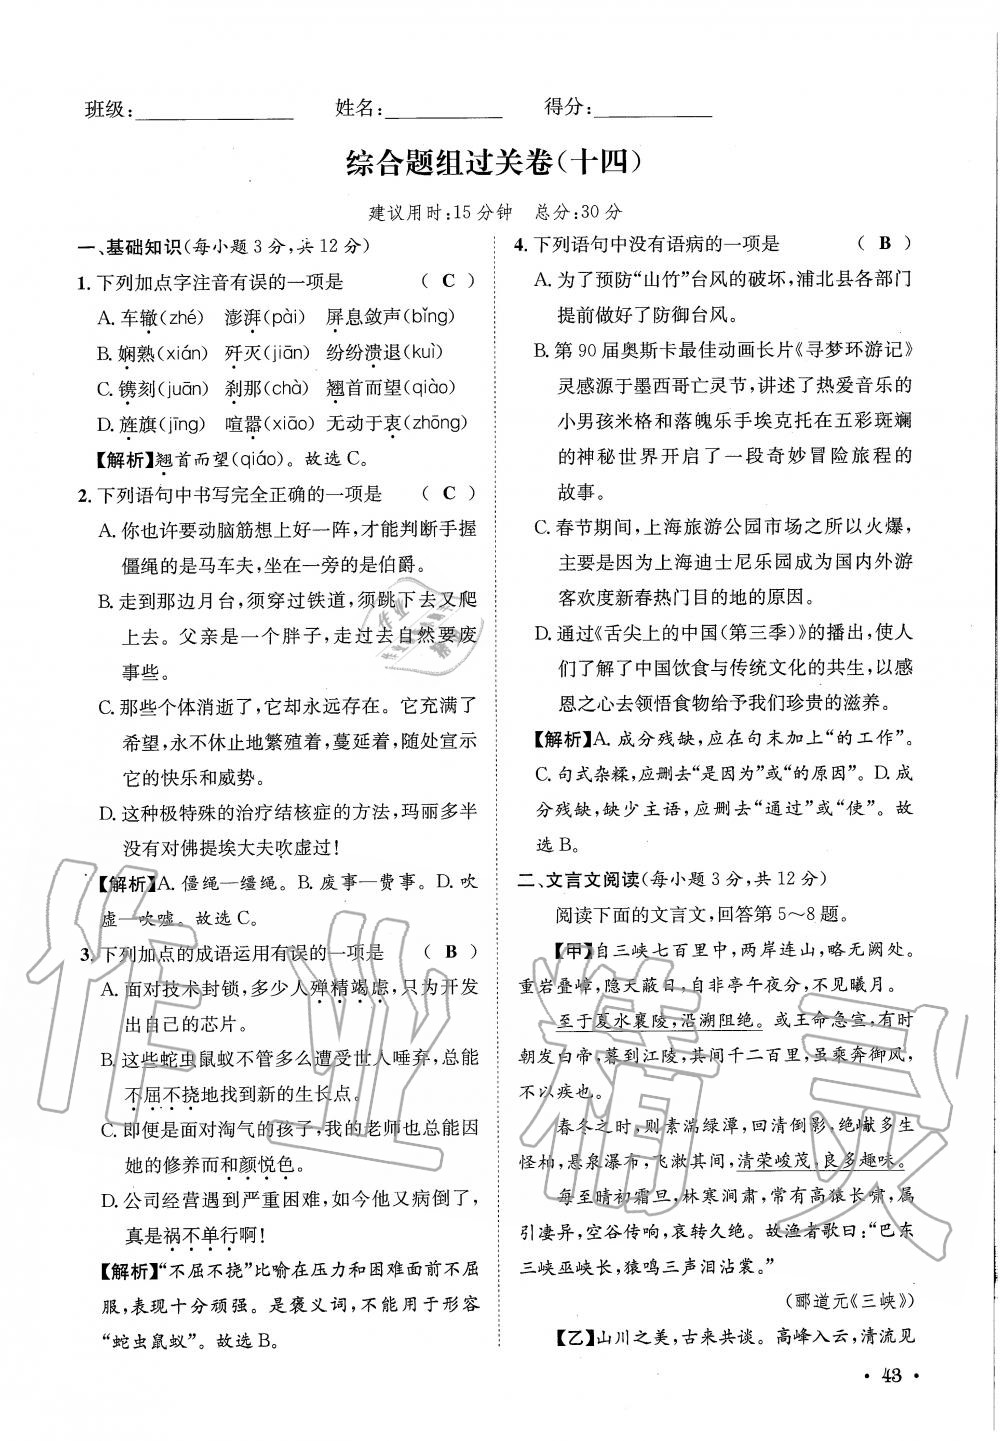 班级:____________ 姓名:____________ 得分:____________
综合题组过关卷(十四)
建议用时:15分钟 总分:30分
一、基础知识(每小题3分,共12分)
1. 下列加点字注音有误的一项是 ( C )
A. 车辙(zhé) 澎湃(pài) 屏息敛声(bǐng)
B. 娴熟(xián) 歼灭(jiān) 纷纷溃退(kuì)
C. 镌刻(juān) 刹那(chà) 翘首而望(qiào)
D. 旌旗(jīng) 喧嚣(xiāo) 无动于衷(zhōng)
【解析】翘首而望(qiáo)。故选C。
2. 下列语句中书写完全正确的一项是 ( C )
A. 你也许要动脑筋想上好一阵,才能判断手握
僵绳的是马车夫,信任的是伯爵。
B. 走到那边月台,须穿过铁道,须跳下去又爬
上去。父亲是一个胖子,走过去自然要废
事些。
C. 那些个体消逝了,它却永远存在。它充满了
希望,永不休止地繁殖着,蔓延着,随处宣示
它的快乐和威势。
D. 这种极特殊的治疗结核症的方法,玛丽多半
没有对佛提埃大夫吹虚过!
【解析】A. 僵绳—缰绳。B. 废事—费事。D. 吹
虚—吹嘘。故选C。
3. 下列加点的成语运用有误的一项是 ( B )
A. 面对技术封锁,多少人殚精竭虑,只为开发
出自己的芯片。
B. 这些蛇虫鼠蚁不管多么遭受世人唾弃,总能
不屈不挠地找到新的生长点。
C. 即便是面对淘气的孩子,我的老师也总能因
她的修养而和颜悦色。
D. 公司经营遇到严重困难,如今他又病倒了,
真是祸不单行啊!
【解析】“不屈不挠”比喻在压力和困难面前不屈
服,表现十分顽强。是褒义词,不能用于形容
“蛇虫鼠蚁”。故选B。
4. 下列语句中没有语病的一项是 ( B )
A. 为了预防“山竹”台风的破坏,浦北县各部门
提前做好了防御台风。
B. 第90届奥斯卡最佳动画长片《寻梦环游记》
灵感源于墨西哥亡灵节,讲述了热爱音乐的
小男孩米格和落魄乐手埃克托在五彩斑斓
的神秘世界开启了一段奇妙冒险旅程的
故事。
C. 春节期间,上海旅游公园市场之所以火爆,
主要是因为上海迪士尼乐园成为国内外游
客欢度新春热门目的地的原因。
D. 通过《舌尖上的中国(第三季)》的播出,使人
们了解了中国饮食与传统文化的共生,以感
恩之心去领悟食物给予我们珍贵的滋养。
【解析】A. 成分残缺,应在句末加上“的工作”。
C. 句式杂糅,应删去“是因为”或“的原因”。D. 成
分残缺,缺少主语,应删去“通过”或“使”。故
选B。
二、文言文阅读(每小题3分,共12分)
阅读下面的文言文,回答第5～8题。
【甲】自三峡七百里中,两岸连山,略无阙处。
重岩叠嶂,隐天蔽日,自非亭午夜分,不见曦月。
至于夏水襄陵,沿溯阻绝。或王命急宣,有时
朝发白帝,暮到江陵,其间千二百里,虽乘奔御风,
不以疾也。
春冬之时,则素湍绿潭,回清倒影,绝𪩘多生
怪柏,悬泉瀑布,飞漱其间,清荣峻茂,良多趣味。
每至晴初霜旦,林寒涧肃,常有高猿长啸,属
引凄异,空谷传响,哀转久绝。故渔者歌曰:“巴东
三峡巫峡长,猿鸣三声泪沾裳。”
(郦道元《三峡》)
【乙】山川之美,古来共谈。高峰入云,清流见
· 43 ·